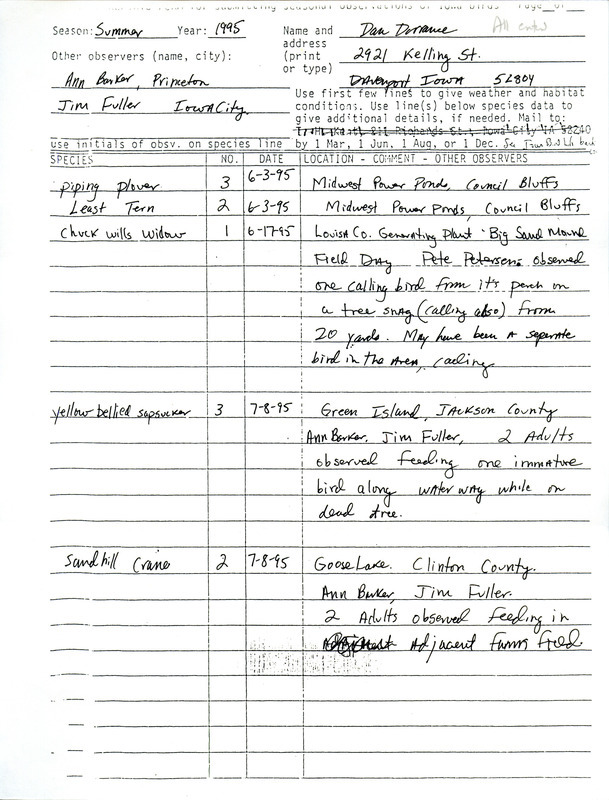 Season: Summer Year: 1995 Name and Dan Dorrance All
Other observers (name, city): address (print or type) 2921 Kelling St.
Ann Barker, Princeton Davenport Iowa 52804
Jim Fuller Iowa City
Use first few lines to give weather and habitat
conditions. Use line(s) below species data to
give additional details, if needed. Mail to:
use initials of obsv. on species line by 1 Mar, 1 Jun, 1 Aug, or 1 Dec.
SPECIES NO. DATE LOCATION - COMMENT - OTHER OBSERVERS
piping plover 3 6-3-95 Midwest Power Ponds, Council Bluffs
Least Tern 2 6-3-95 Midwest Power Ponds, Council Bluffs
Chuck wills widow 1 6-17-95 Louisa Co. Generating Plant Big Sand Mound
Field Day Pete Petersens observed
one calling bird from it's perch on
a tree snag (calling also) from
20 yards. May have been a separate
bird in the area, calling
yellow bellied sapsucker 3 7-8-95 Green Island, Jackson County
Ann Barker. Jim Fuller, 2 Adults
observed feeding one immature
bird along waterway while on
dead tree.
Sandhill Crane 2 7-8-95 Goose Lake. Clinton County.
Ann Barker, Jim Fuller.
2 Adults observed feeding in
Adjacent farm field